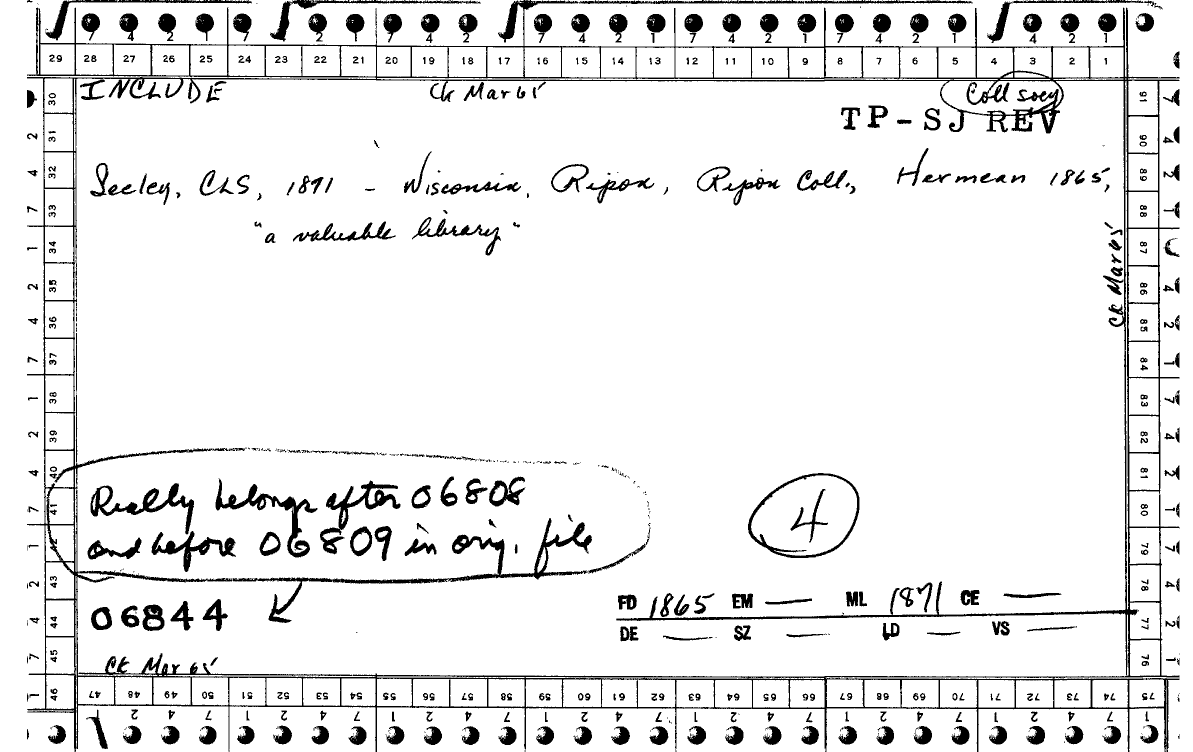 7 4 2 1 7 2 1 7 4 2 1 7 4 2 1 7 4 2 1 4 2 1
29 28 27 26 25 24 23 22 21 20 19 18 17 16 15 14 13 12 11 10 9 8 7 6 5 4 3 2 1
INCLUDE Ck Mar 65 Coll socy
TP-SJ REV
Seeley, CLS, 1871 - Wisconsin, Ripon, Ripon Coll., Hermean 1865,
"a valuable library"
Ck Mar 65
Really belongs after 06808
and before 06809 in orig. file
4
06844
FD 1865 EM — ML 1871 CE —
DE — SZ — LD — VS —
Ck Mar 65
30 31 32 33 34 35 36 37 38 39 40 41 42 43 44 45 46
2 4 7 1 2 4 7 1 2 4 7 1 2 4 7 1
47 48 49 50 51 52 53 54 55 56 57 58 59 60 61 62 63 64 65 66 67 68 69 70 71 72 73 74 75
76 77 78 79 80 81 82 83 84 85 86 87 88 89 90 91